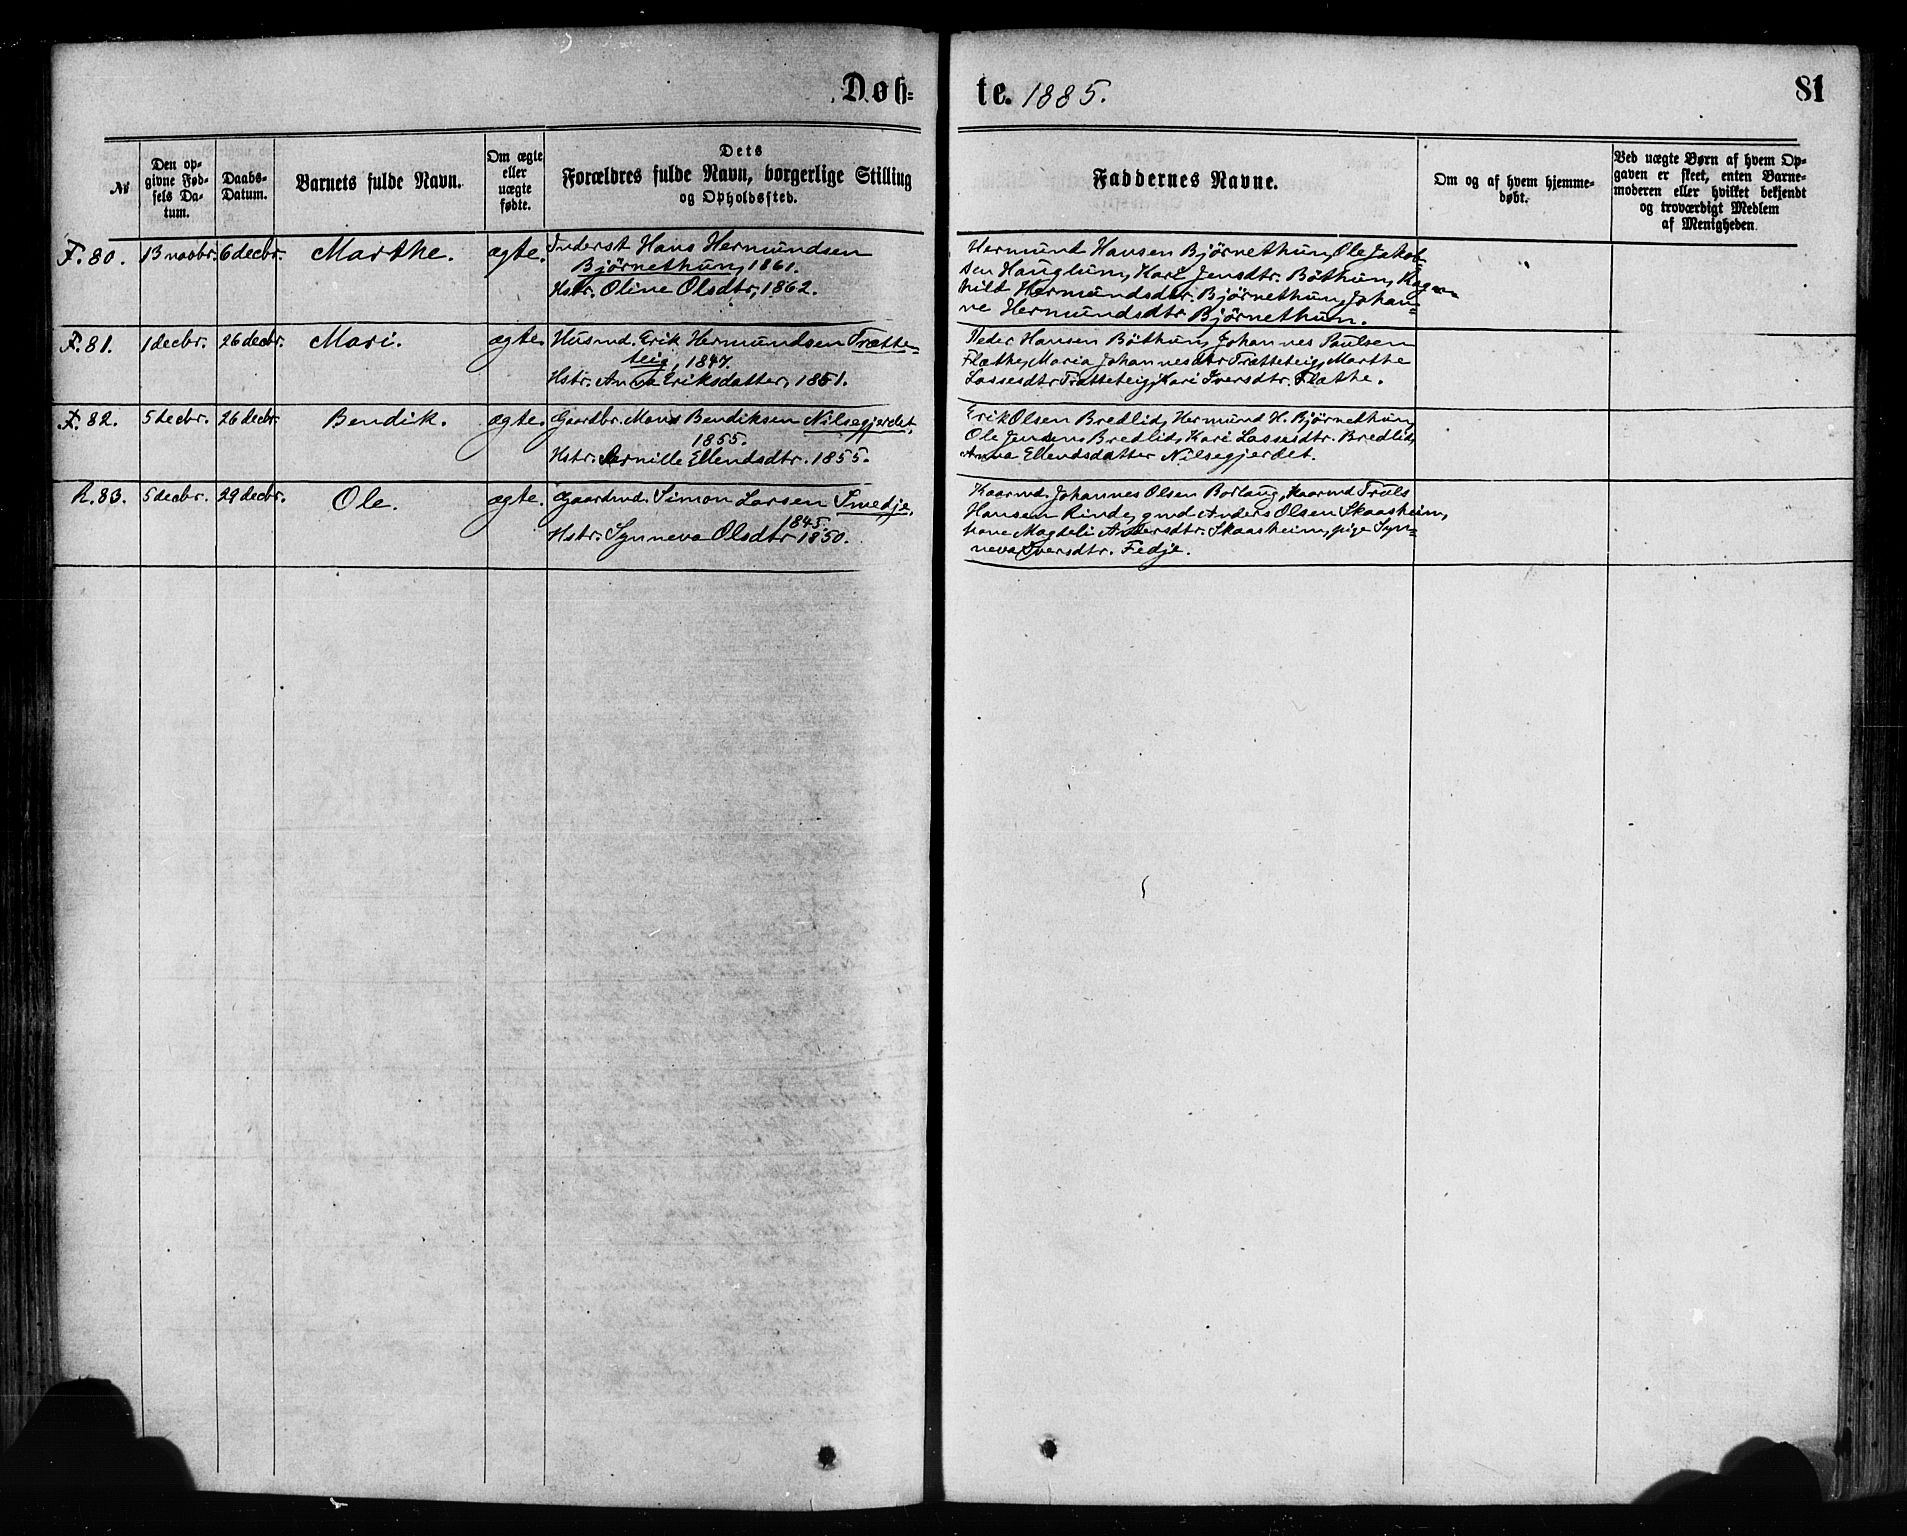 Døb=
te. 1885.
81
№
Den op-
givne Fød-
sels Da-
tum.
Daabs-
Datum.
Barnets fulde Navn.
Om ægte
eller
uægte
fødte.
Dets
Forældres fulde Navn, borgerlige Stilling
og Opholdssted.
Faddernes Navne.
Om og af hvem hjemme-
døbt.
Ved uægte Børn af hvem Op-
gaven er skeet, enten Barne-
moderen eller hvilket bekjendt
og troværdigt Medlem
af Menigheden.
F. 80. 13 novbr. 6 decbr. Marthe. ægte. Inderst Hans Hermundsen
Bjørnethun, 1861.
Hstr. Oline Olsdtr, 1862.
Hermund Hansen Bjørnethun, Ole Jakob=
sen Hauglum, Kari Jensdtr. Bøthun, Ragn=
hild Hermundsdtr. Bjørnethun, Johan=
ne Hermundsdtr Bjørnethun.
F. 81. 1 decbr. 26 decbr. Mari. ægte. Husmd. Erik Hermundsen Trætte=
teig, 1847.
Hstr. Anna Eriksdatter, 1851.
Peder Hansen Bøthun, Johannes Paulsen
Flæthe, Maria Johannesdtr Trætteteig, Marthe
Lassesdtr Trætteteig, Kari Iversdtr. Flæthe.
F. 82. 5 decbr. 26 decbr. Bendik. ægte. Gaardbr. Mons Bendiksen Nilsegjerdet,
1855.
Hstr. Pernille Ellendsdtr. 1855.
Erik Olsen Bredlid, Hermund H. Bjørnethun,
Ole Jensen Bredlid, Kari Lassesdtr. Bredlid,
Anna Ellendsdatter Nilsegjerdet.
R. 83. 5 decbr. 29 decbr. Ole. ægte. Gaardmd. Simon Larsen Smedje,
1845.
Hstr. Synneva Olsdtr 1850.
Kaarmd. Johannes Olsen Borlaug, Kaarmd Truls
Hansen Rinde, gmd Anders Olsen Skaasheim,
kone Magdeli Andersdtr. Skaasheim, pige Syn=
neva Iversdtr. Fedje.